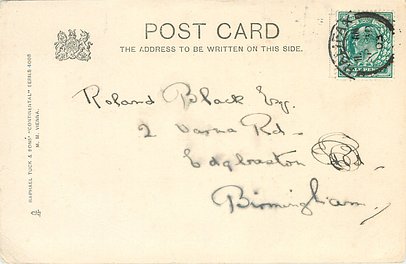 POST CARD
THE ADDRESS TO BE WRITTEN ON THIS SIDE.
HALIFAX
Roland Black Esq.
2 Varna Rd.
Edgbaston Rd.
Birmingham.
RAPHAEL TUCK & SONS' "CONTINENTAL" SERIES 4006
M. M. VIENNA.